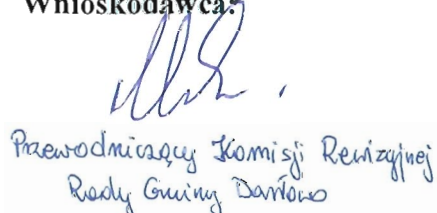 Wnioskodawca:
Przewodniczący Komisji Rewizyjnej
Rady Gminy Darłowo